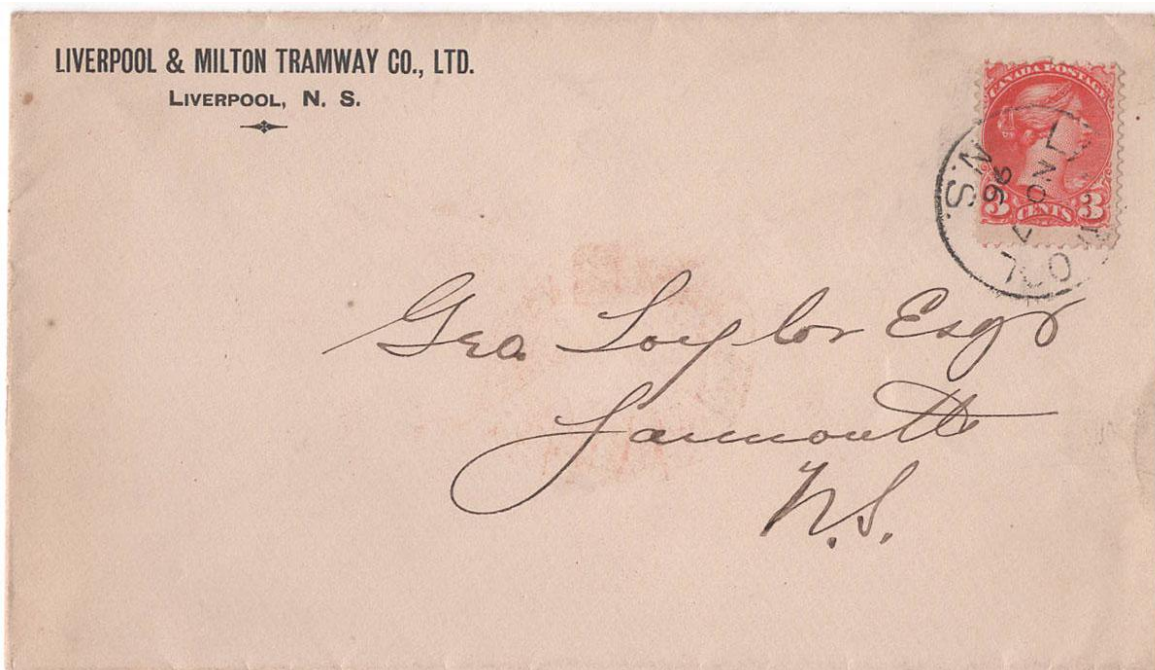 LIVERPOOL & MILTON TRAMWAY CO., LTD.
LIVERPOOL, N. S.
CANADA POSTAGE
3 CENTS 3
N.S.
NO 7
96
Geo Taylor Esqr
Yarmouth
N.S.